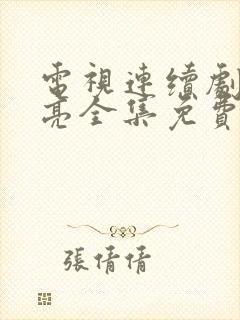 電視連續劇
亮全集免費
張倩倩